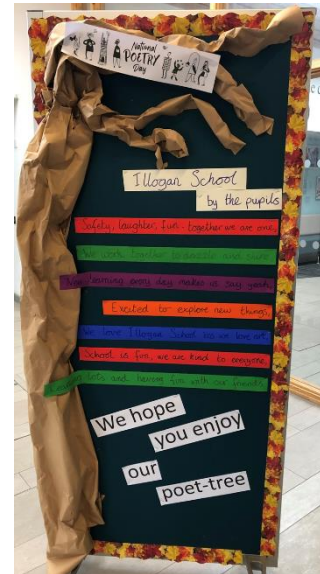 National
POETRY
Day
Illogan School
by the pupils
Safety, laughter, fun - together we are one,
We work together to and share
New learning every day makes us say yeah,
Excited to explore new things,
We love Illogan School as we love art,
School is fun, we are kind to everyone,
lots and having fun with our friends.
We hope
you enjoy
our
poet-tree